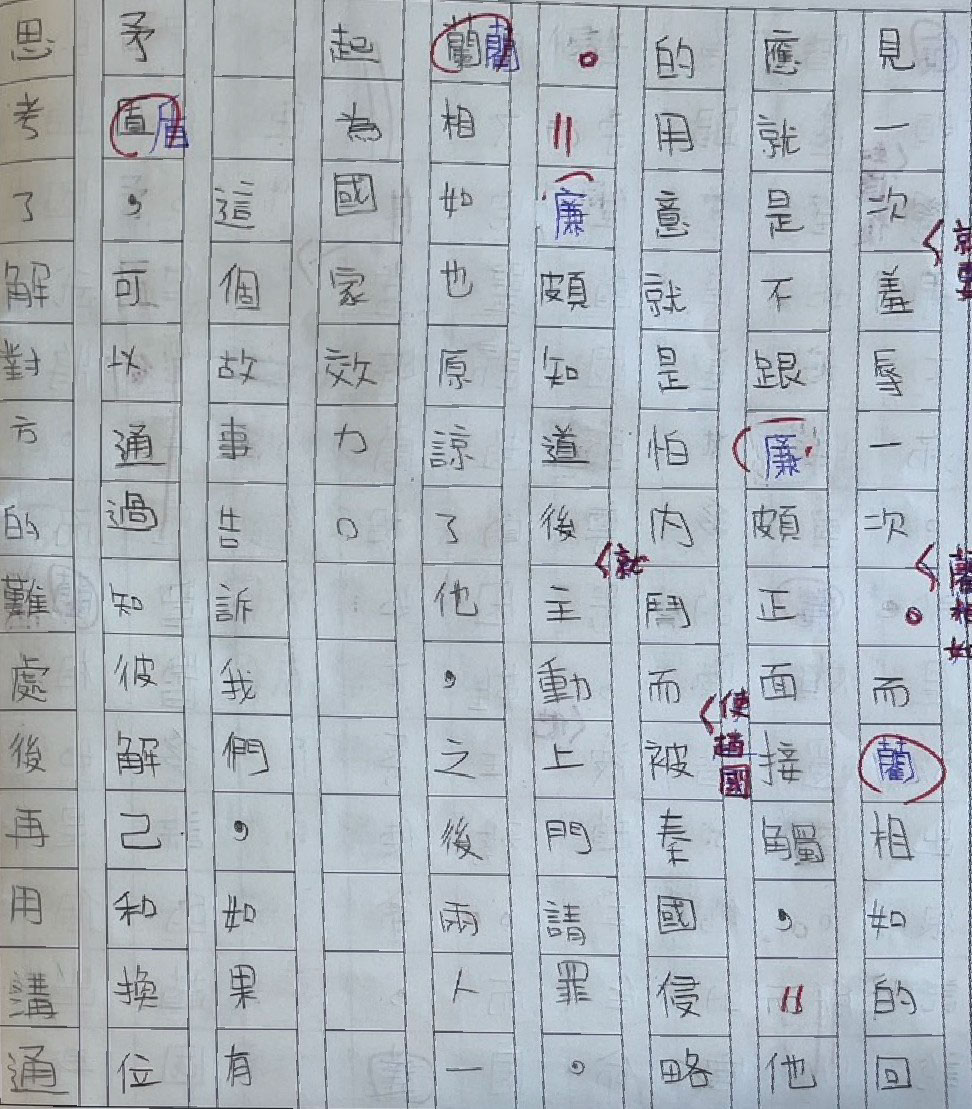 見一次羞辱一次。而藺相如的回
就要
藺相如
應就是不跟廉頗正面接觸，他
的用意就是怕內鬥而被秦國侵略
使趙國
。廉頗知道後主動上門請罪。
就
藺相如也原諒了他，之後兩人一
起為國家效力。
這個故事告訴我們，如果有
矛盾，可以通過知彼解己和換位
思考了解對方的難處後再用溝通